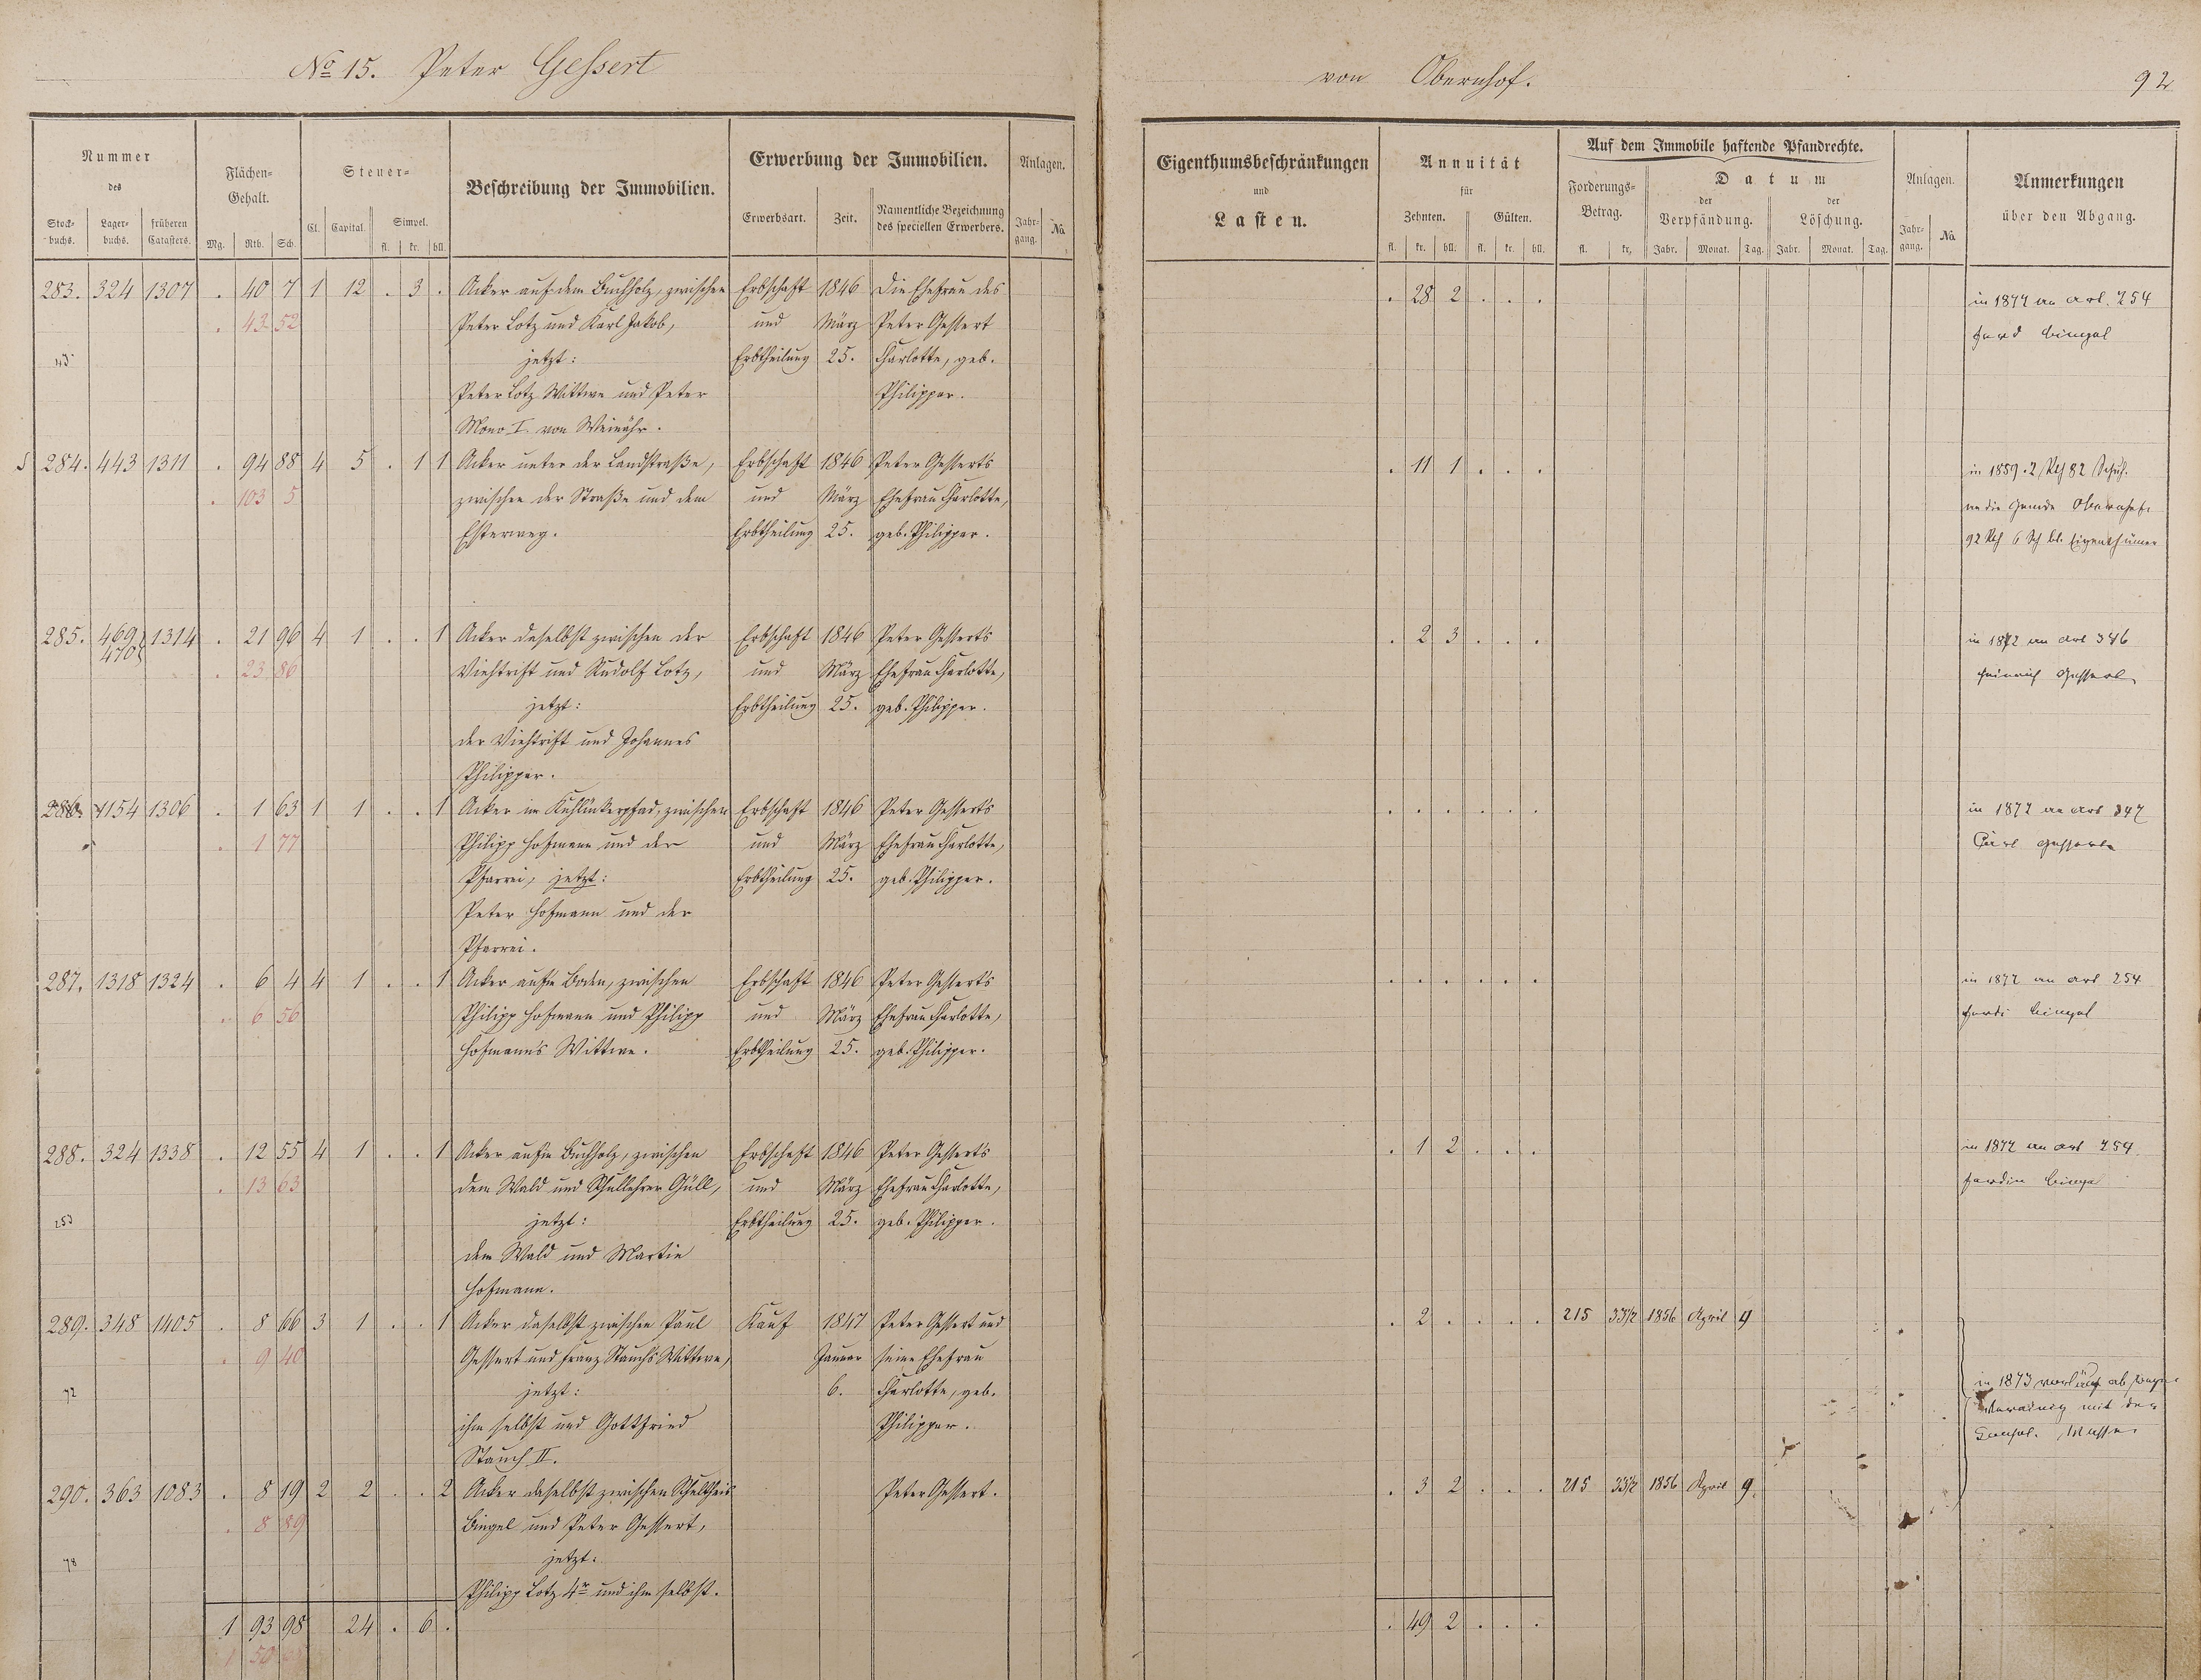 No 15. Peter Gessert von Obernhof. 92
Nummer des
Stockbuchs. Lagerbuchs. früheren Catasters.
Flächen-Gehalt.
Mg. Rth. Sch.
Steuer-
Cl. Capital. Simpel.
fl. kr. hll.
Beschreibung der Immobilien.
Erwerbung der Immobilien.
Erwerbsart. Zeit. Namentliche Bezeichnung des speciellen Erwerbers.
Anlagen.
Jahrgang. No.
Eigenthumsbeschränkungen
und
Lasten.
Annuität
für
Zehnten. Gülten.
fl. kr. hll. fl. kr. hll.
Auf dem Immobile haftende Pfandrechte.
Forderungs-Betrag. Datum
der Verpfändung. der Löschung.
fl. kr. Jahr. Monat. Tag. Jahr. Monat. Tag.
Anlagen.
Jahrgang. No.
Anmerkungen
über den Abgang.
283. 324 1307 . 40 7 1 12 . 3 . Acker auf dem Buchholz, zwischen Erbschaft 1846 Die Ehefrau des . 28 2 . . . in 1877 an Art. 254
. 43 52 Peter Lotz und Karl Jakob, und März Peter Gessert Ferd Bingel
jetzt: Erbtheilung 25. Charlotte, geb.
Peter Lotz Wittwe und Peter Philippar.
Mono I. von Weinähr.
284. 443 1311 . 94 88 4 5 . 1 1 Acker unter der Landstraße, Erbschaft 1846 Peter Gessert's . 11 1 . . . in 1859. 2 Rth 82 Schuh.
. 103 5 zwischen der Straße und dem und März Ehefrau Charlotte, an die Gemde Obernhof.
Esterweg. Erbtheilung 25. geb. Philippar. 92 Rth 6 Sch bl. Eigenthümer
285. 469 470 1314 . 21 96 4 1 . . 1 Acker daselbst zwischen der Erbschaft 1846 Peter Gessert's . 2 3 . . . in 1872 an Art 346
. 23 86 Viehtrift und Rudolf Lotz, und März Ehefrau Charlotte, Heinrich Gessert
jetzt: Erbtheilung 25. geb. Philippar.
der Viehtrift und Johannes
Philippar.
286. 1154 1306 . 1 63 1 1 . . 1 Acker im zwischen Erbschaft 1846 Peter Gessert's . . . . . . in 1872 an Art 347
. 1 77 Philipp Hofmann und der und März Ehefrau Charlotte, Carl Gessert
Pfarrei, jetzt: Erbtheilung 25. geb. Philippar.
Peter Hofmann und der
Pfarrei.
287. 1318 1324 . 6 4 4 1 . . 1 Acker auf'm Boden, zwischen Erbschaft 1846 Peter Gessert's . . . . . . in 1877 an Art 254
. 6 56 Philipp Hofmann und Philipp und März Ehefrau Charlotte, Ferdi Bingel
Hofmann's Wittwe. Erbtheilung 25. geb. Philippar.
288. 324 1338 . 12 55 4 1 . . 1 Acker auf'm Buchholz, zwischen Erbschaft 1846 Peter Gessert's . 1 2 . . . in 1877 an Art 254.
. 13 63 dem Wald und Schullehrer Güll, und März Ehefrau Charlotte, Ferdin Bingel
253 jetzt: Erbtheilung 25. geb. Philippar.
dem Wald und Martin
Hofmann.
289. 348 1405 . 8 66 3 1 . . 1 Acker daselbst zwischen Paul Kauf 1847 Peter Gessert und . 2 . . . . 215 33½ 1856 April 9
. 9 40 Gessert und Franz Stauch's Wittwe, Januar seine Ehefrau
72 jetzt: 6. Charlotte, geb. in 1873 ab
ihm selbst und Gottfried Philippar. mit der
Stauch II. Consol. Masse.
290. 363 1083 . 8 19 2 2 . . 2 Acker daselbst zwischen Schultheis Peter Gessert. . 3 2 . . . 215 33½ 1856 April 9.
. 8 89 Bingel und Peter Gessert,
78 jetzt:
Philipp Lotz 4r und ihm selbst.
1 93 98 24 . 6 . . 49 2 . . .